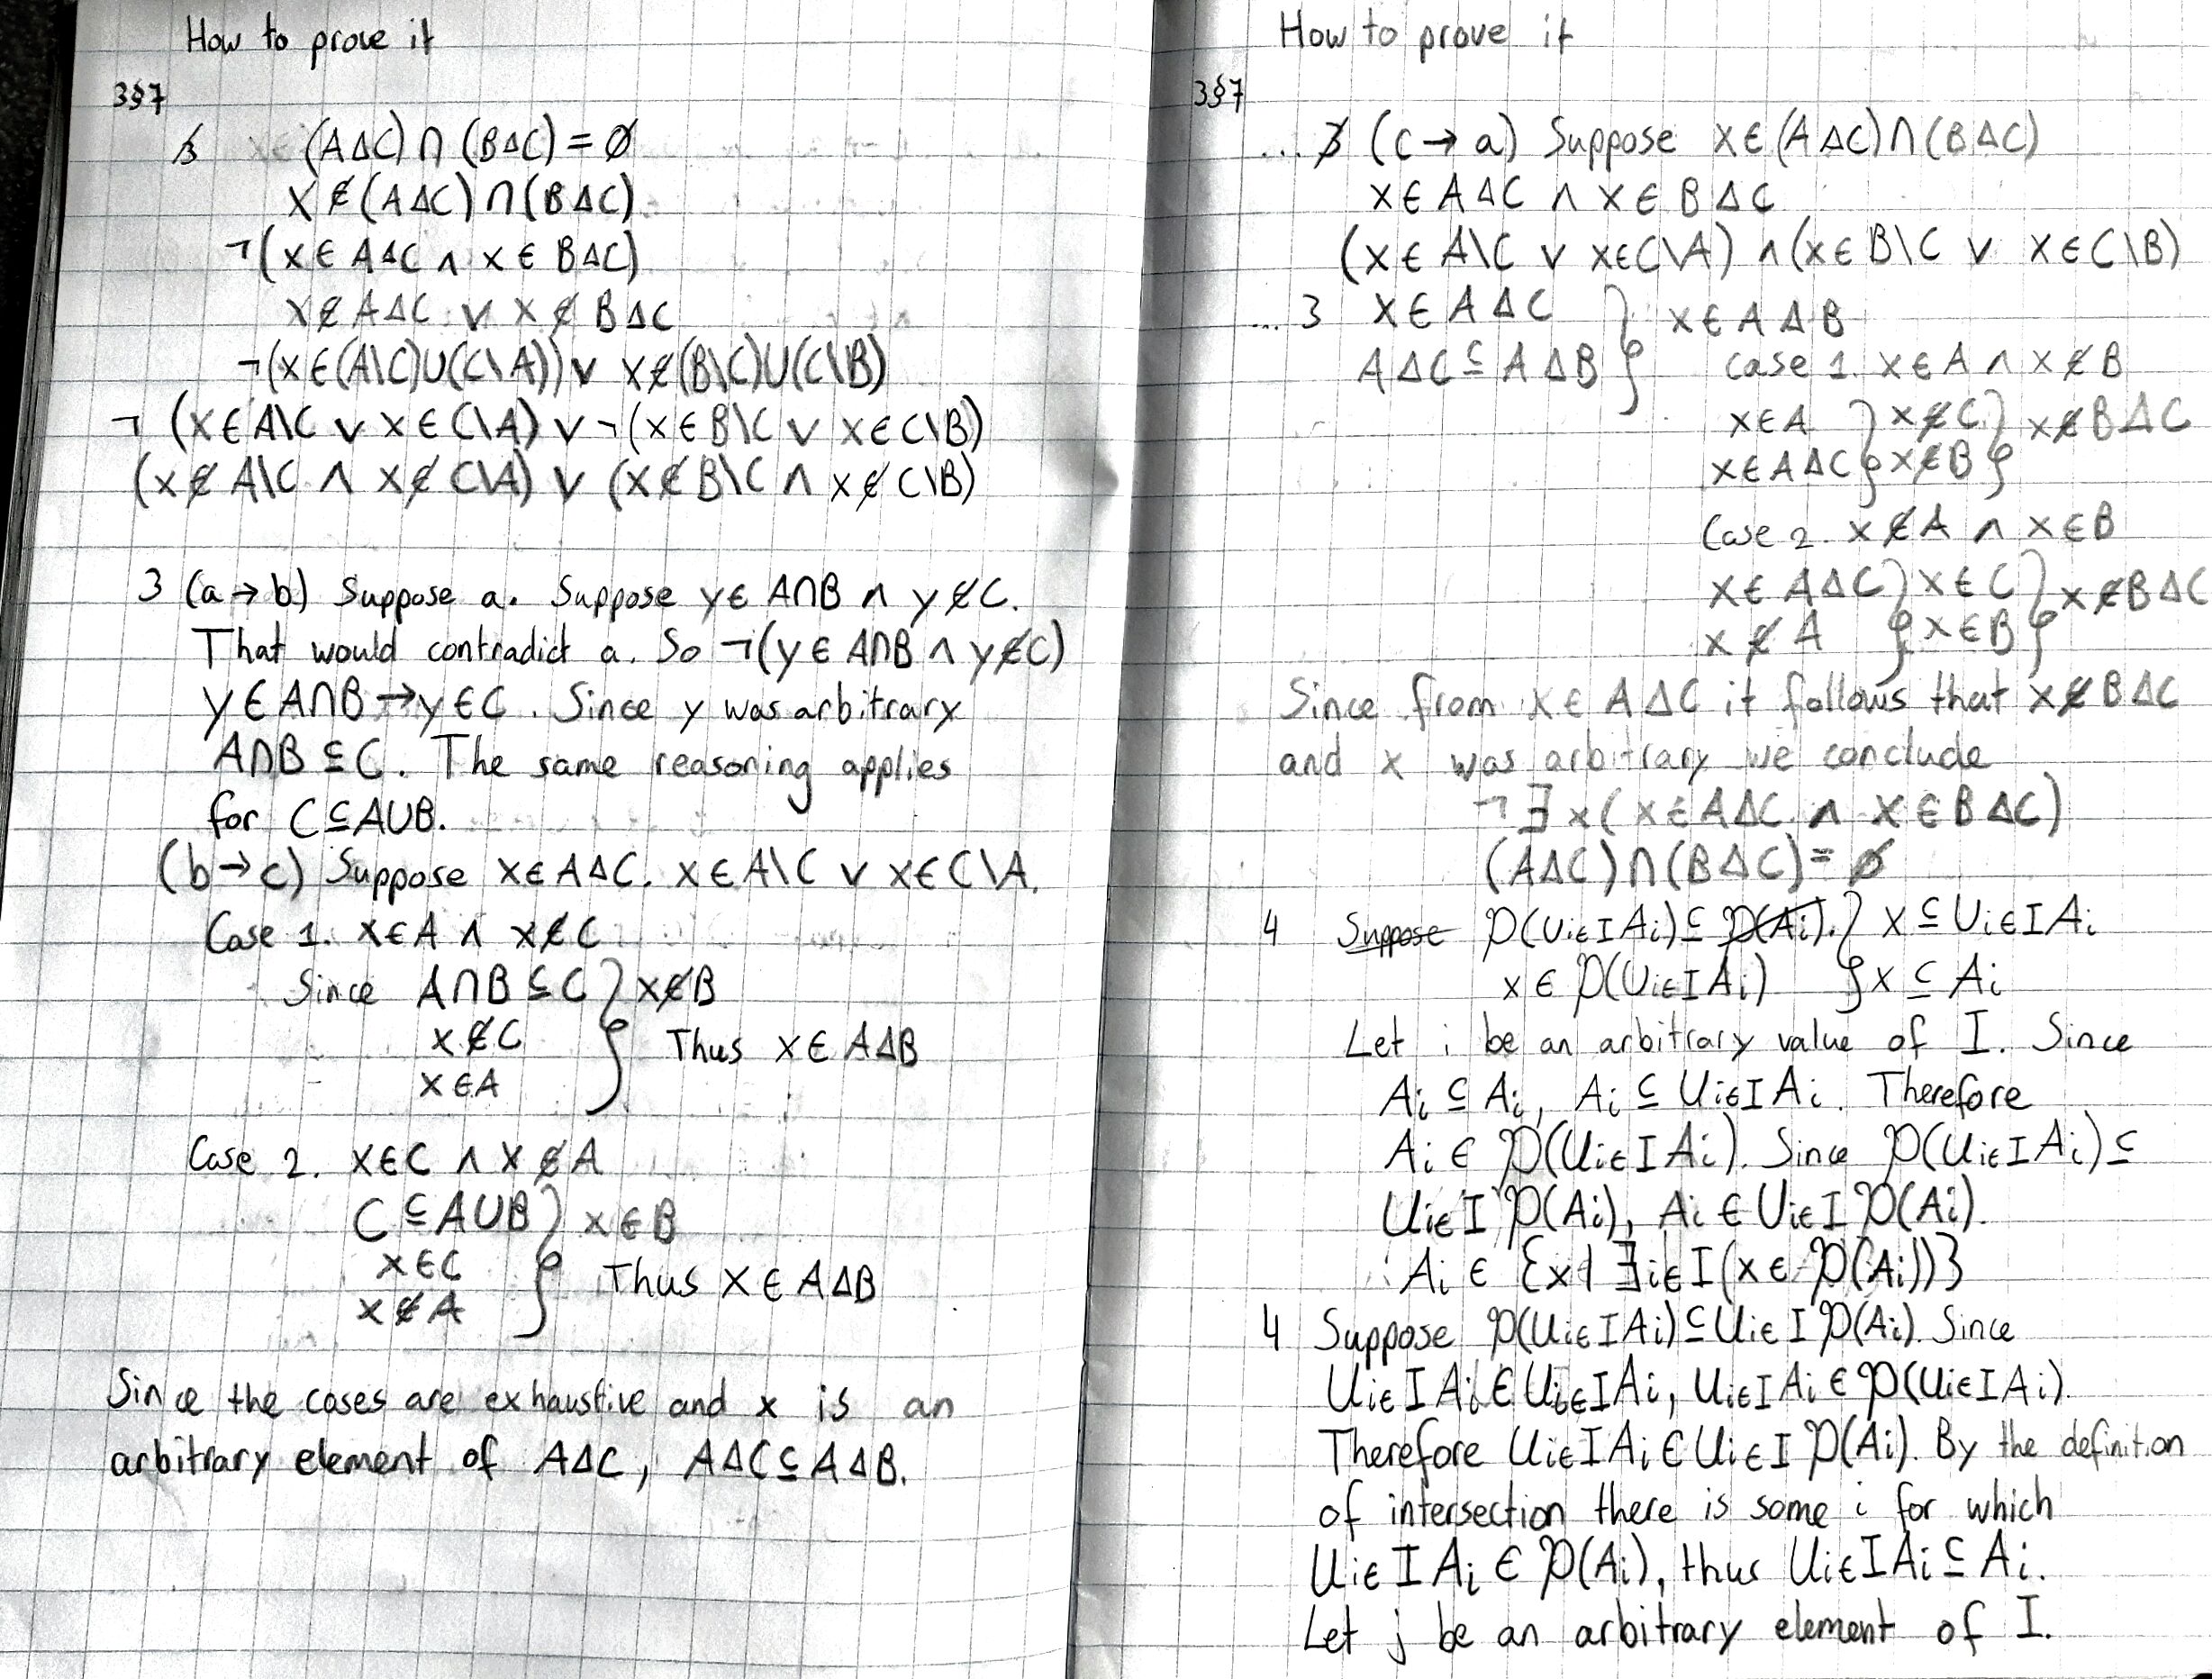 How to prove it
3§7
3 x∈ (A△C)∩(B△C)=∅
x∉(A△C)∩(B△C)
¬(x∈A△C ∧ x∈B△C)
x∉A△C ∨ x∉B△C
¬(x∈(A\C)∪(C\A)) ∨ x∉(B\C)∪(C\B)
¬(x∈A\C ∨ x∈C\A) ∨ ¬(x∈B\C ∨ x∈C\B)
(x∉A\C ∧ x∉C\A) ∨ (x∉B\C ∧ x∉C\B)
3 (a→b) Suppose a. Suppose y∈A∩B ∧ y∉C.
That would contradict a. So ¬(y∈A∩B ∧ y∉C)
y∈A∩B→y∈C. Since y was arbitrary
A∩B⊆C. The same reasoning applies
for C⊆A∪B.
(b→c) Suppose x∈A△C. x∈A\C ∨ x∈C\A.
Case 1. x∈A ∧ x∉C
Since A∩B⊆C } x∉B
x∉C } Thus x∈A△B
x∈A
Case 2. x∈C ∧ x∉A
C⊆A∪B } x∈B
x∈C } Thus x∈A△B
x∉A
Since the cases are exhaustive and x is an
arbitrary element of A△C, A△C⊆A△B.
How to prove it
3§7
... 3 (c→a) Suppose x∈(A△C)∩(B△C)
x∈A△C ∧ x∈B△C
(x∈A\C ∨ x∈C\A) ∧ (x∈B\C ∨ x∈C\B)
... 3 x∈A△C } x∈A△B
A△C⊆A△B } case 1. x∈A ∧ x∉B
x∈A } x∉C } x∉B△C
x∈A△C } x∉B }
Case 2. x∉A ∧ x∈B
x∈A△C } x∈C } x∉B△C
x∉A } x∈B }
Since from x∈A△C it follows that x∉B△C
and x was arbitrary we conclude
¬∃x(x∈A△C ∧ x∈B△C)
(A△C)∩(B△C)=∅
4 Suppose ℘(∪i∈I Ai)⊆℘(Ai). } x⊆∪i∈I Ai
x∈℘(∪i∈I Ai) } x⊆Ai
Let i be an arbitrary value of I. Since
Ai⊆Ai, Ai⊆∪i∈I Ai. Therefore
Ai∈℘(∪i∈I Ai). Since ℘(∪i∈I Ai)⊆
∪i∈I ℘(Ai), Ai∈∪i∈I ℘(Ai).
Ai∈{x| ∃i∈I(x∈℘(Ai))}
4 Suppose ℘(∪i∈I Ai)⊆∪i∈I ℘(Ai). Since
∪i∈I Ai∈∪i∈I Ai, ∪i∈I Ai∈℘(∪i∈I Ai).
Therefore ∪i∈I Ai∈∪i∈I ℘(Ai). By the definition
of intersection there is some i for which
∪i∈I Ai∈℘(Ai), thus ∪i∈I Ai⊆Ai.
Let j be an arbitrary element of I.